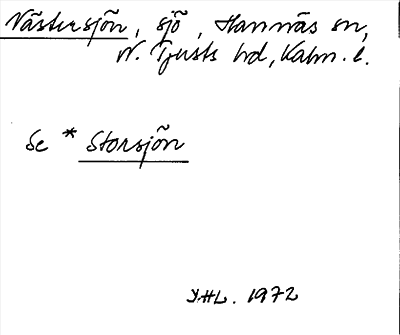 Västersjön, sjö, Hannäs sn,
N. Tjusts hd, Kalm. l.
Se * Storsjön
YHL. 1972